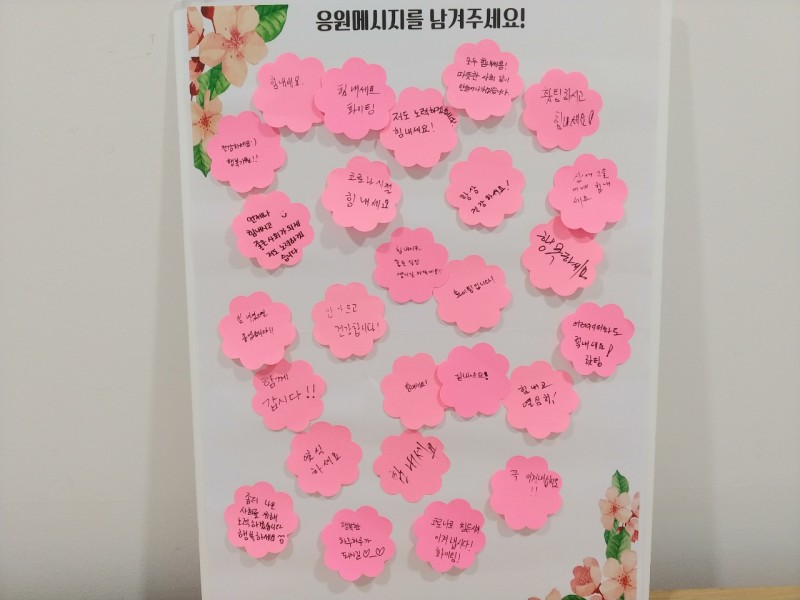 응원메시지를 남겨주세요!
힘내세요.
힘내세요
화이팅
저도 노력하겠습니다
힘내세요!
모두 힘내세요!
따뜻한 사회 같이
힘내세요!
건강하세요:)
행복하세요!!
코로나 시절
힘내세요
항상
건강하세요!
힘내
세요
언제나
힘내시고
좋은 사회가 되게
저도 노력하겠
습니다
행복하세요
화이팅입니다!
안 아프고
건강합시다!
힘내세요!
화팅
함께
갑시다!!
힘내세요!
힘내세요!
힘내고
열심히!
하세요
힘내세요
꼭 이겨냅시다
!!
좀더 나은
사회를 위해
노력하겠습니다
행복하세요
행복한
하루하루가
되시길♡
코로나로 힘드시겠지만
이겨냅시다!
화이팅!